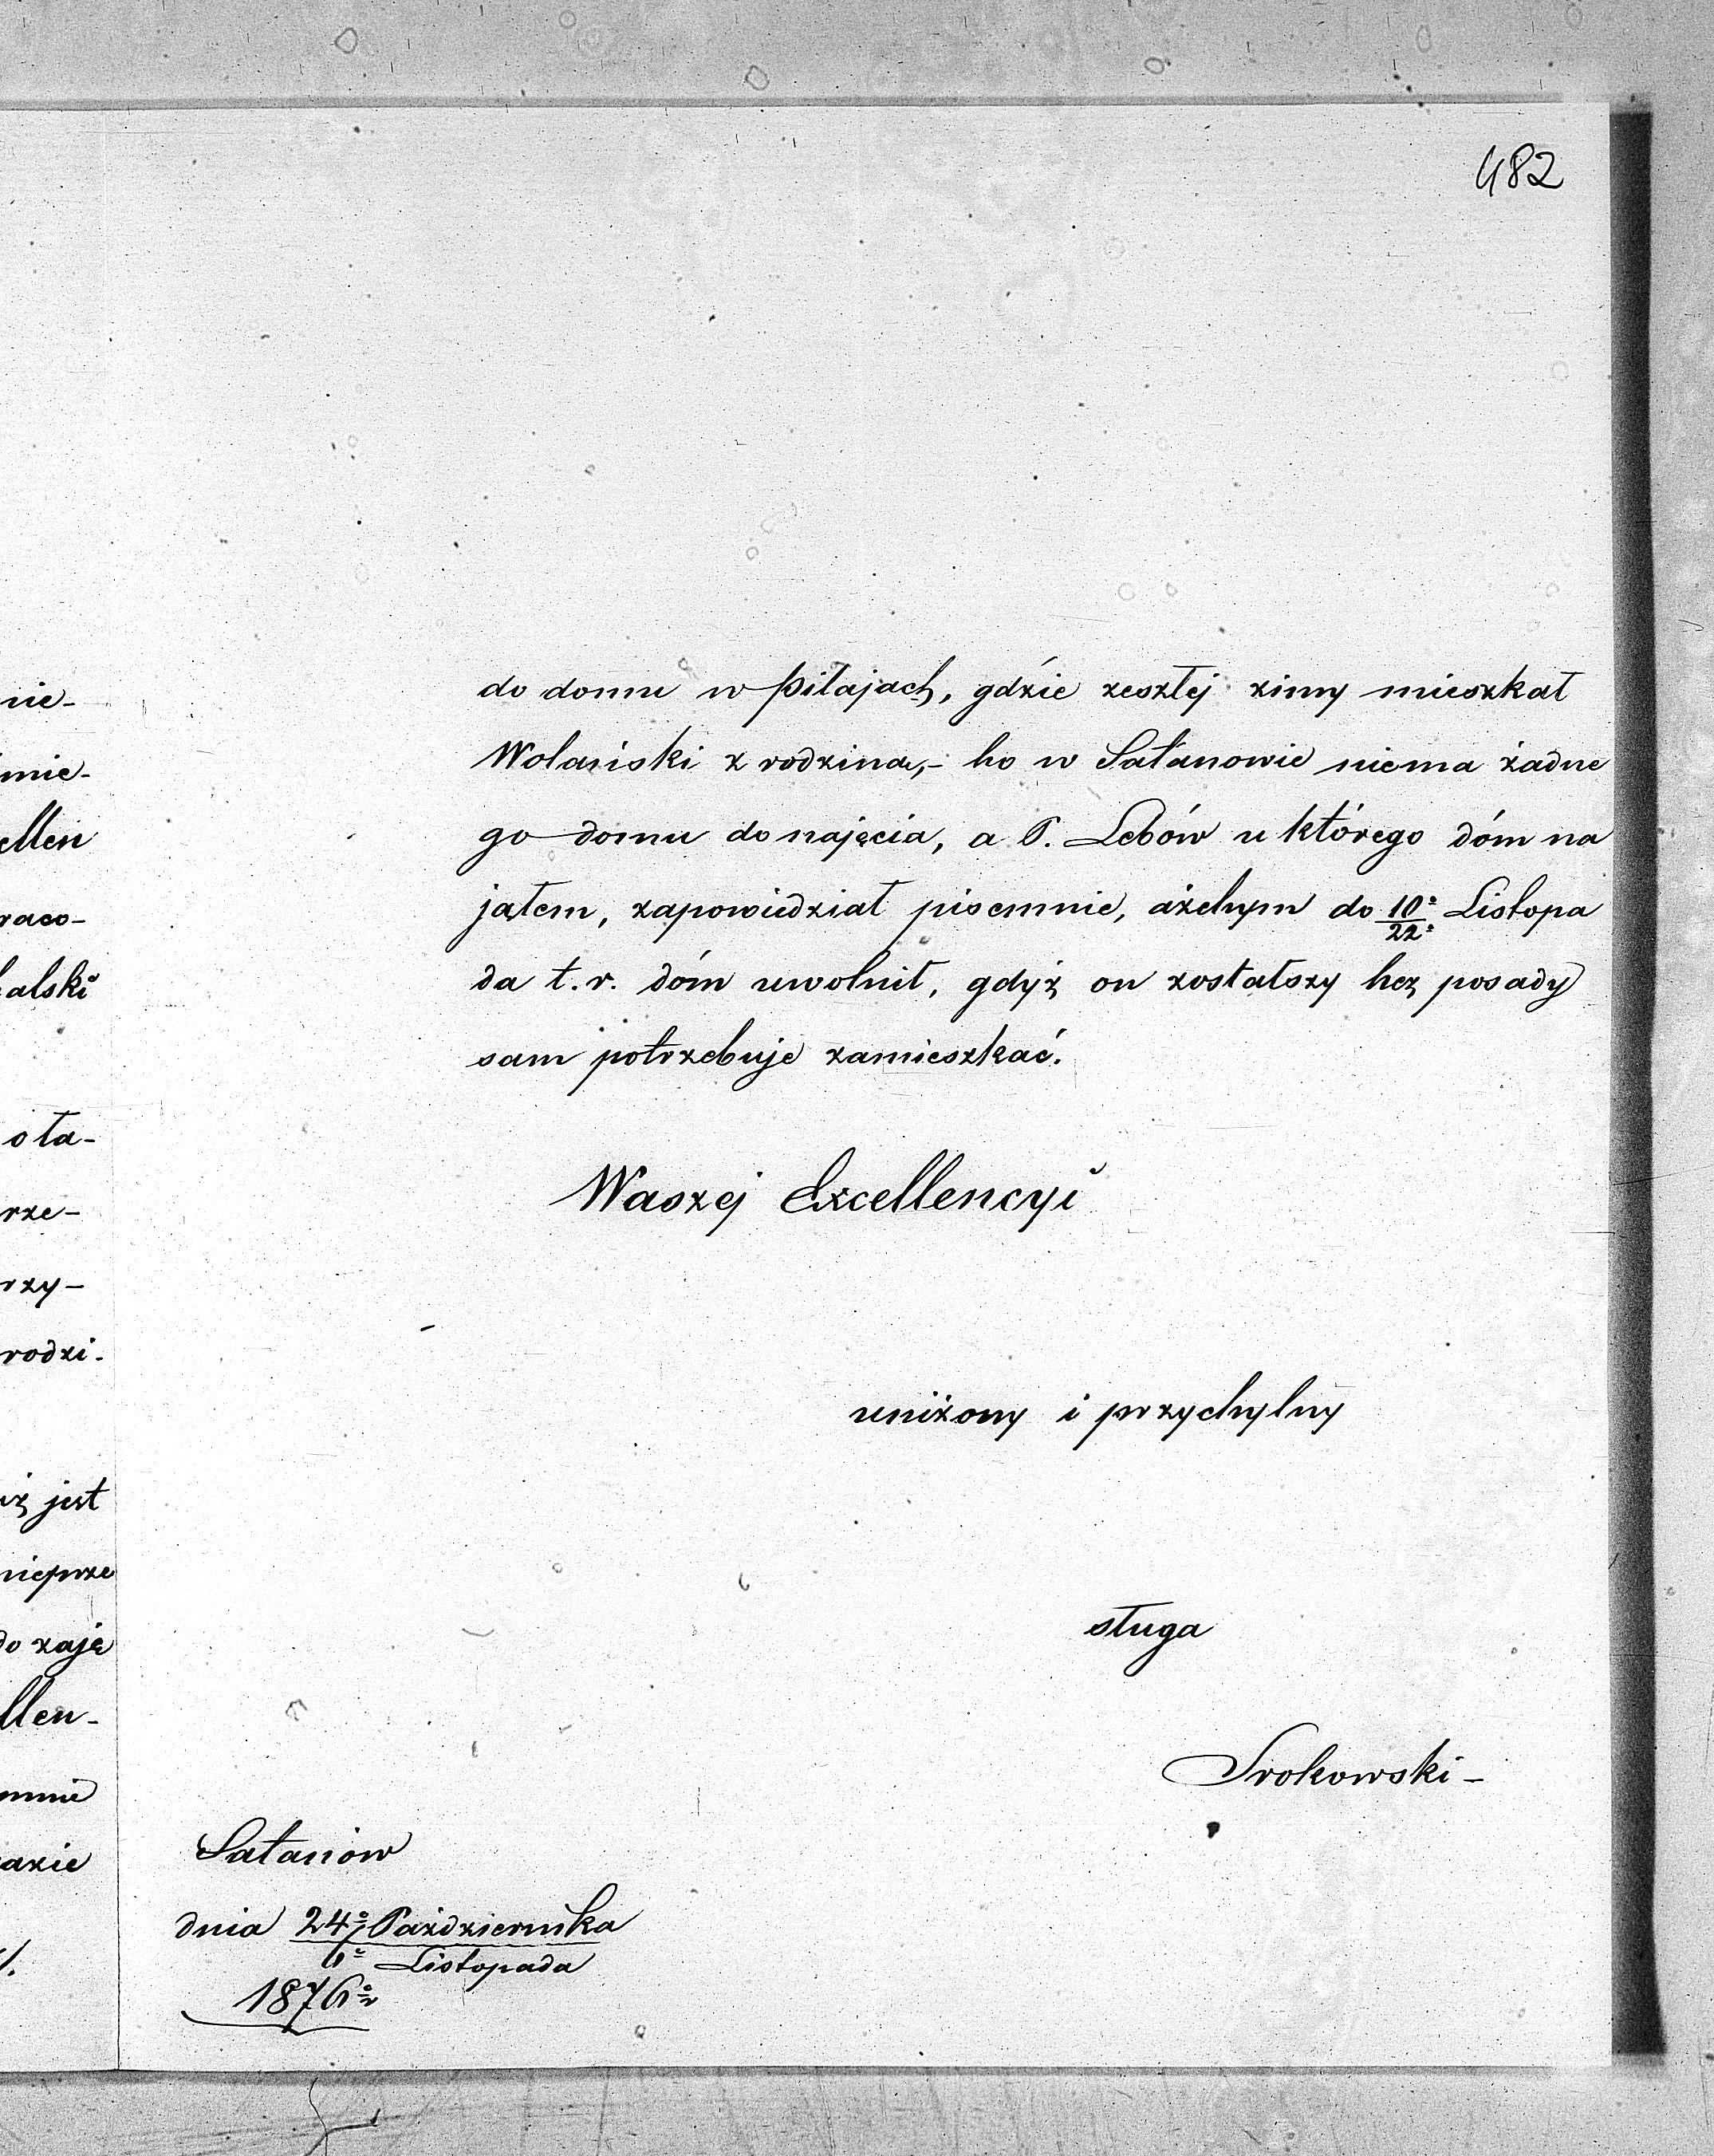 482
nie-
mie-
ellen
raco-
alski
ota-
rze-
rzy-
rodzi-
jest
nieprze
do zaję
llen-
mnie
azie
do domu w Piłajach, gdzie zeszłej zimy mieszkał
Wolański z rodziną,- bo w Satanowie niema żadne
go domu do najęcia, a P. Lebów u którego dóm na
jąłem, zapowiedział pisemnie, ażebym do 10º/22º Listopa
da t.r. dóm uwolnił, gdyż on zostałszy bez posady
sam potrzebuje zamieszkać.
Waszej Excellencyi
uniżony i przychylny
sługa
Srokowski-
Satanów
dnia 24º Października
Listopada
1876º